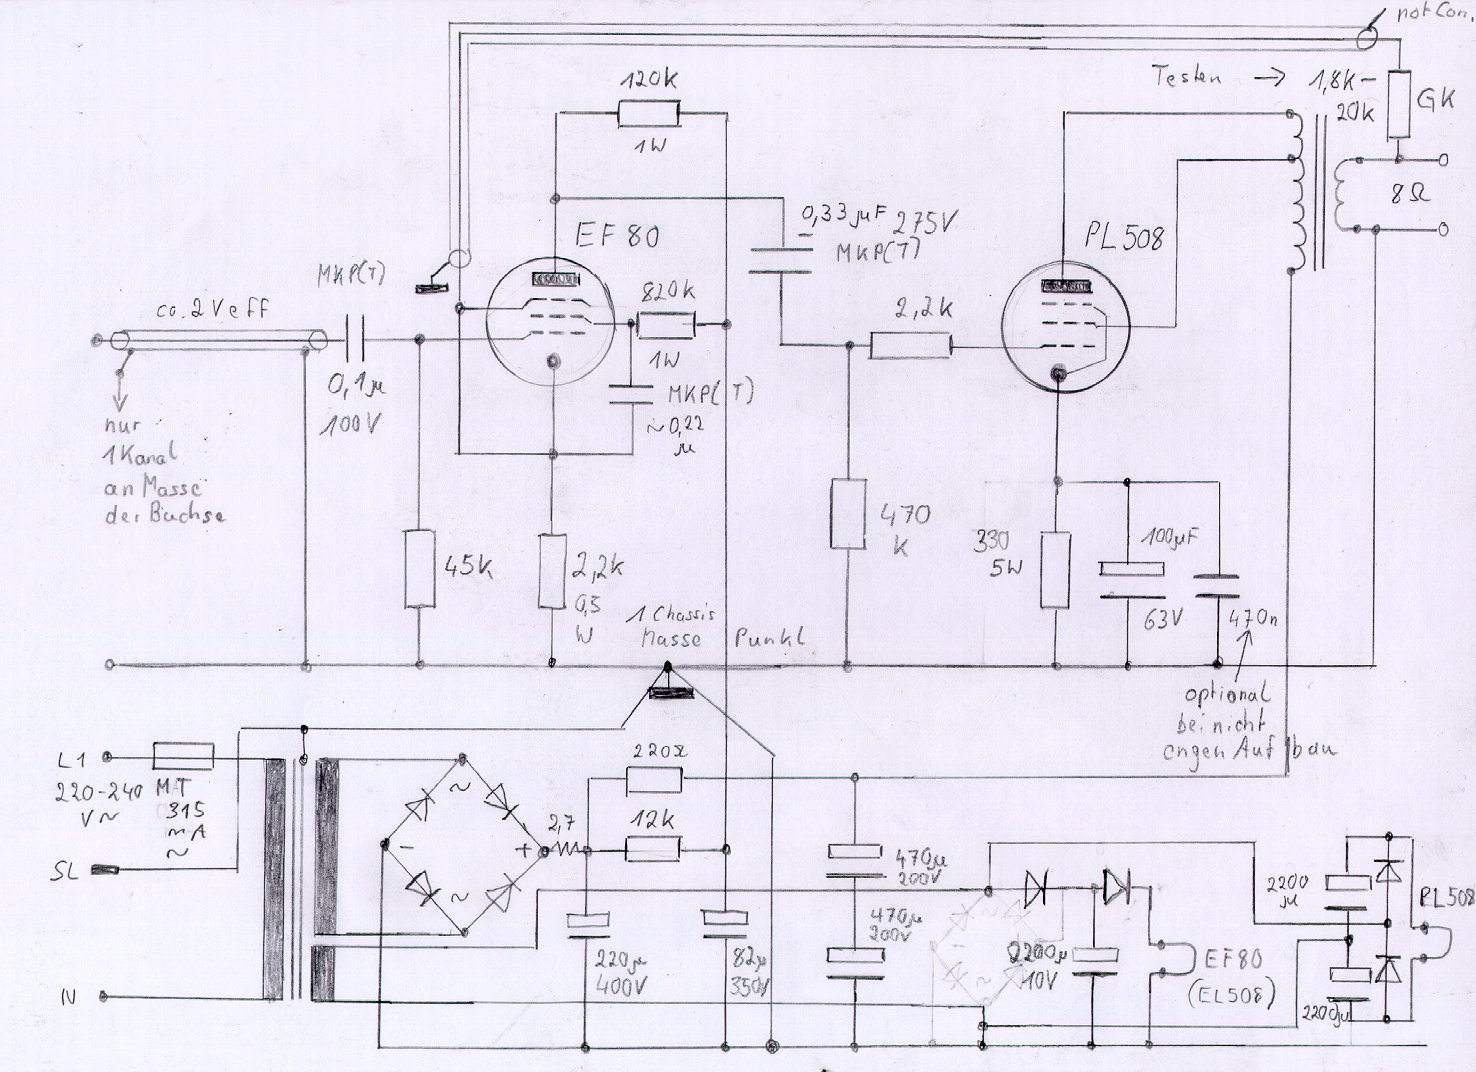 not Con.
Testen → 1,8K-
20K
GK
120K
1W
0,33µF 275V
MKP(T)
EF80
PL508
8Ω
MKP(T)
820K
1W
ca. 2Veff
2,2K
0,1µ
100V
MKP(T)
~0,22
µ
nur
1Kanal
an Masse
der Buchse
470
K
330
5W
100µF
63V
470n
45K
2,2K
0,5
W
1 Chassis
Masse Punkt
optional
bei nicht
engen Aufbau
L1
220-240
V~
MT
315
mA
~
SL
N
~
-
+
~
2,7
220Ω
12K
220µ
400V
82µ
350V
470µ
200V
470µ
200V
~
-
2200µ
10V
EF80
(EL508)
2200
µ
PL508
2200µ